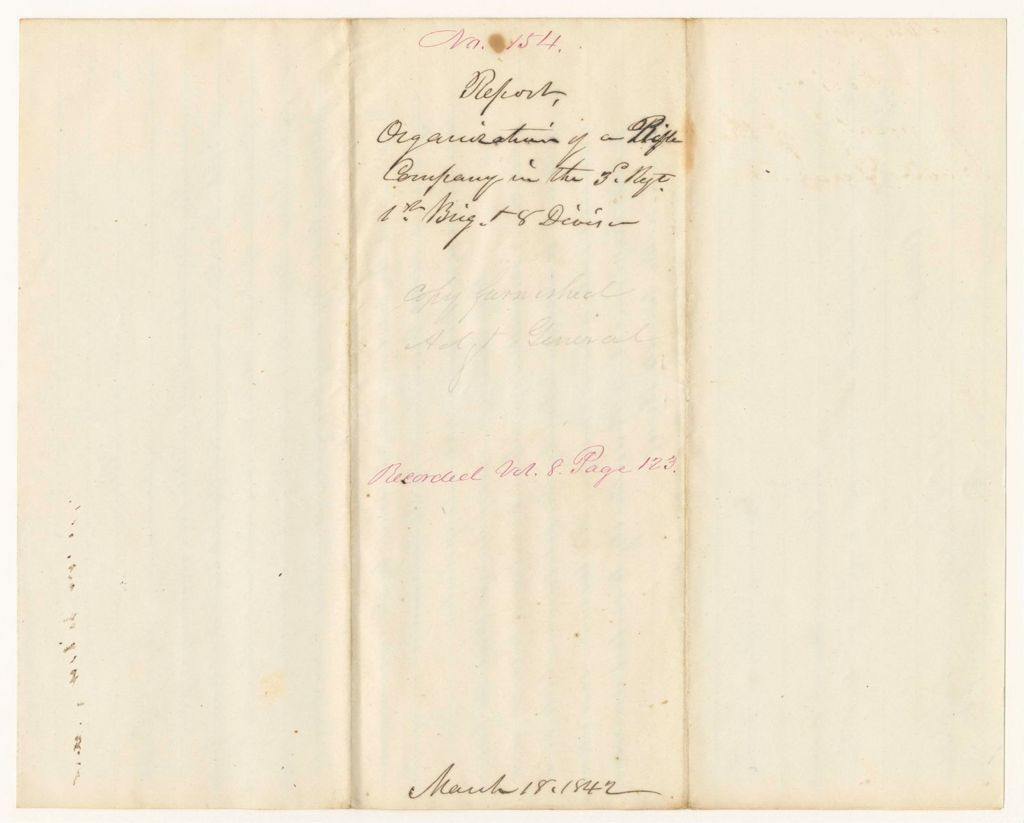 No. 154.
Report,
Organization of a Rifle
Company in the 3d. Regt.
1st Brig. & 8 Divison
Copy furnished
Adgt General
Recorded Vol. 8. Page 123.
March 18. 1842